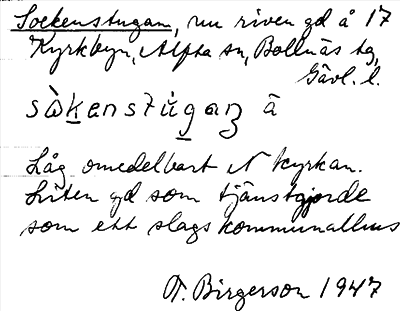 Sockenstugan, nu riven gd å 17
Kyrkbyn, Alfta sn, Bollnäs tg,
Gävl. l.
sòkenstùgaƞ ā
Låg omedelbart N kyrkan.
Liten gd som tjänstgjorde
som ett slags kommunalhus
T. Birgerson 1947